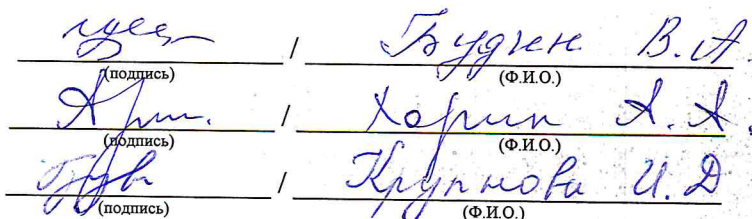 / Будзен В.А.
(подпись) (Ф.И.О.)
/ Харин А.А.
(подпись) (Ф.И.О.)
/ Крупнова И.Д
(подпись) (Ф.И.О.)